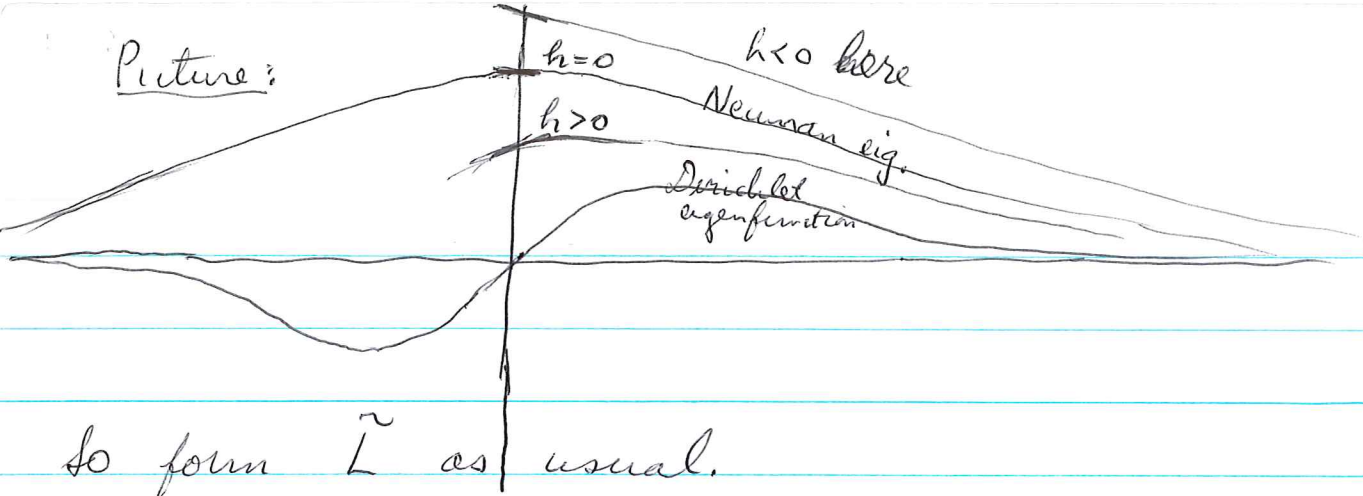 Picture:
h=0
h<0 here
Neuman eig.
h>0
Dirichlet
eigenfunction
So form L̃ as usual.